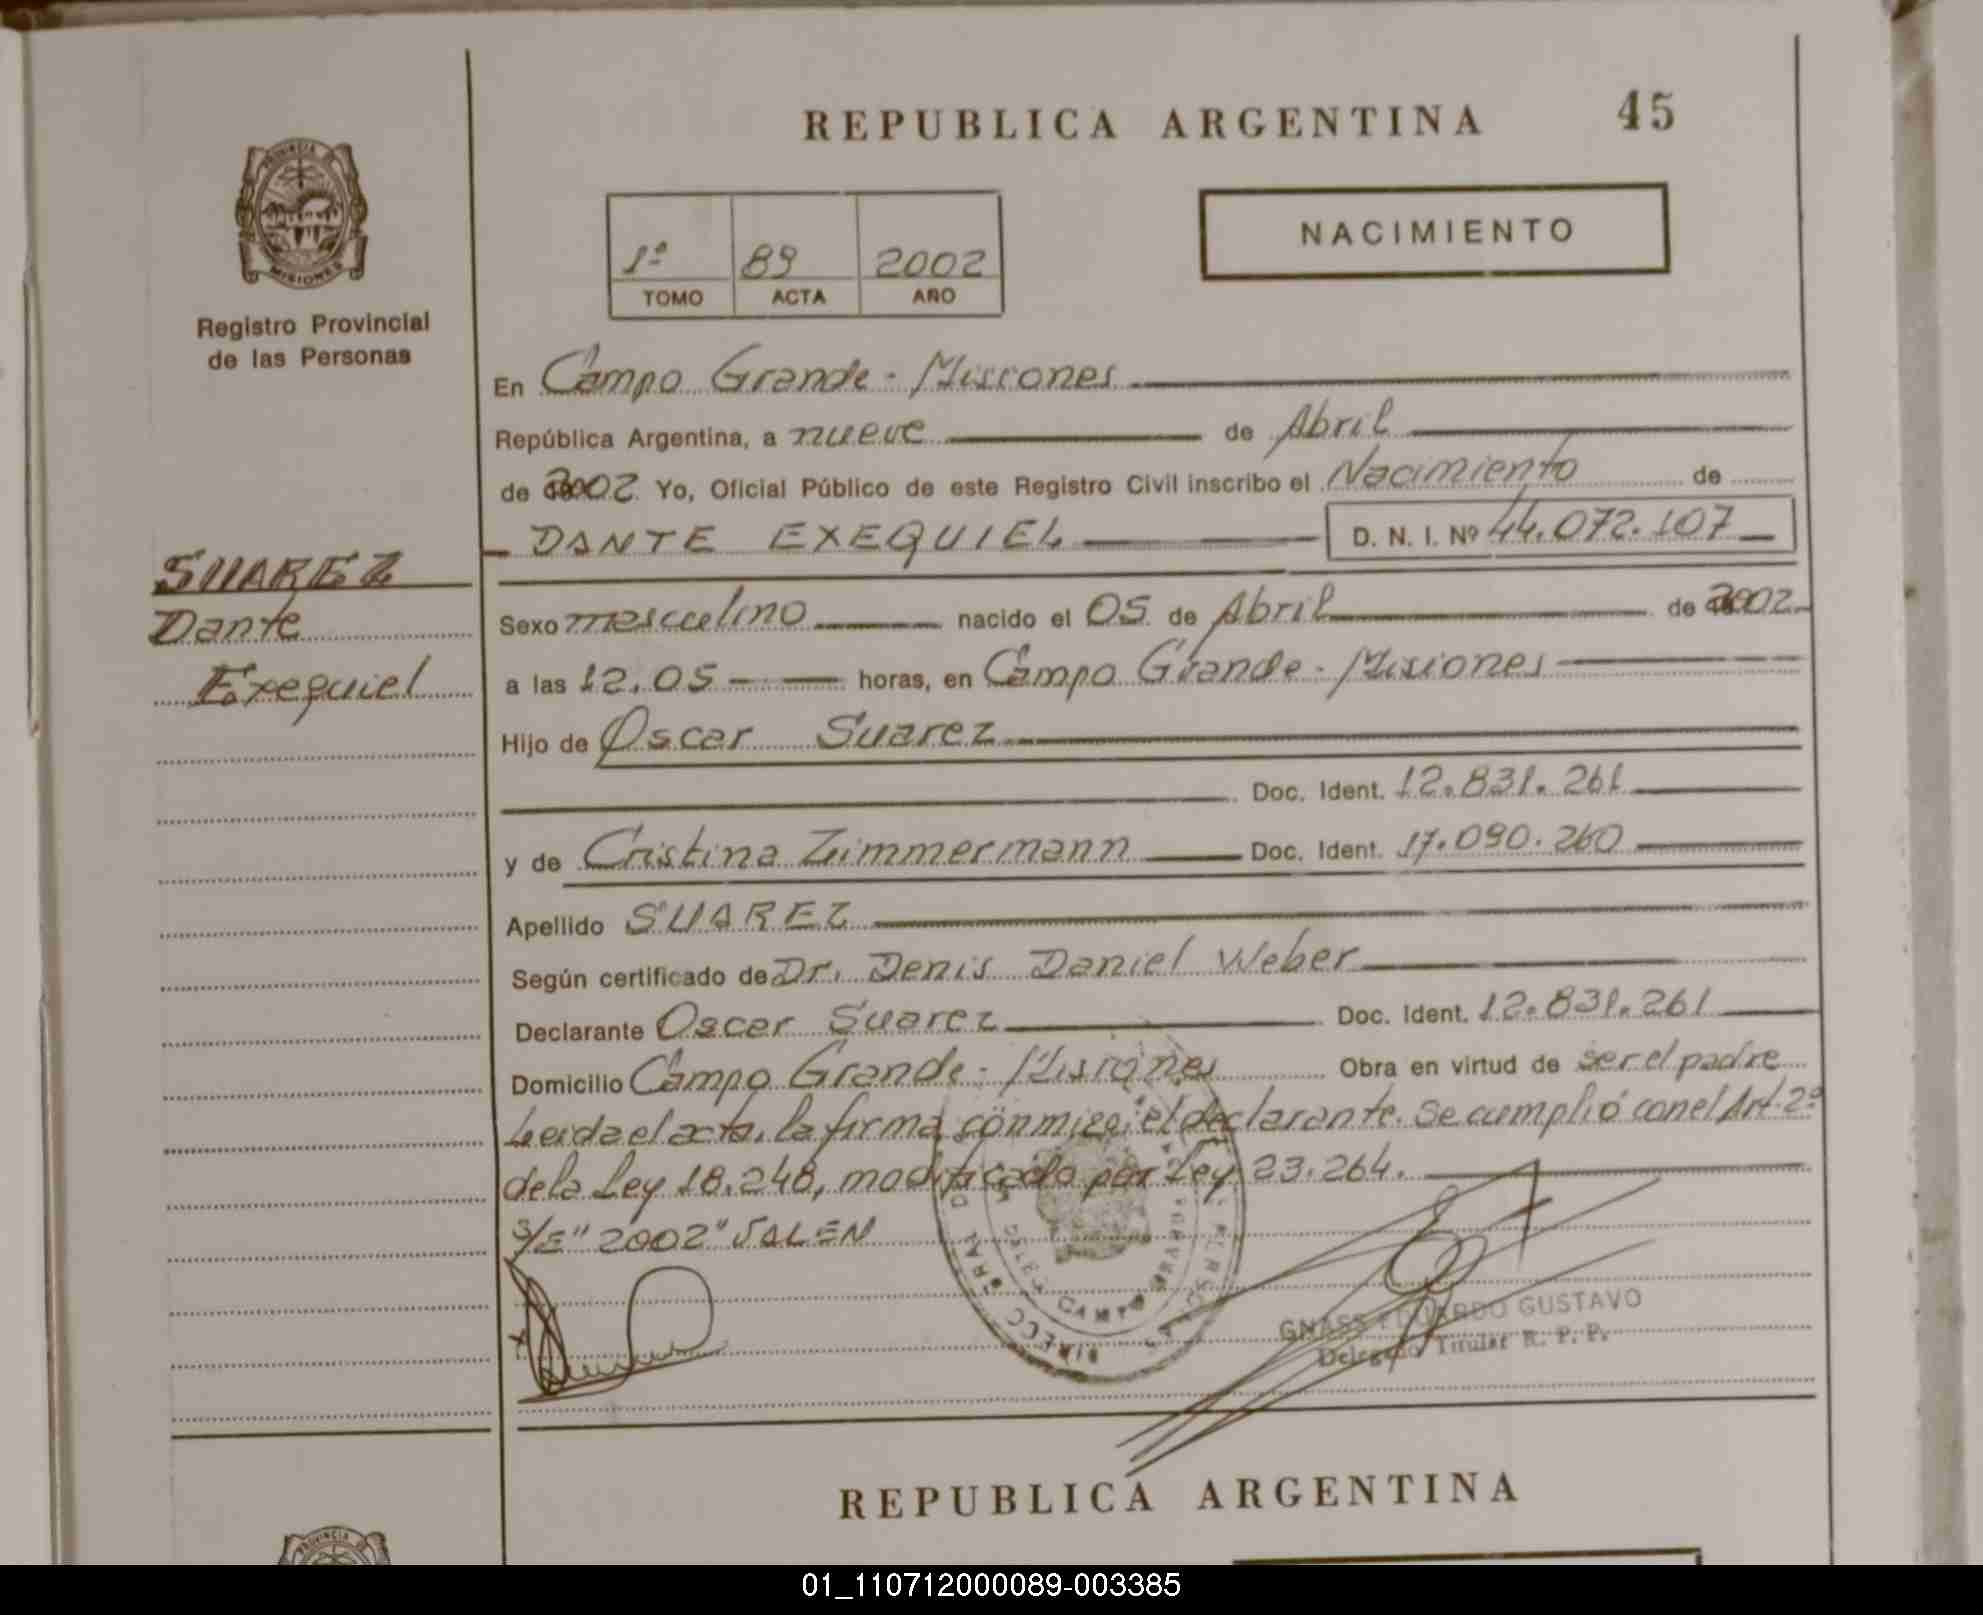 REPUBLICA ARGENTINA 45
PROVINCIA DE
MISIONES
Registro Provincial
de las Personas
1ª 89 2002
TOMO ACTA AÑO
NACIMIENTO
En Campo Grande - Misiones
República Argentina, a nueve de Abril
de 2002 Yo, Oficial Público de este Registro Civil inscribo el Nacimiento de
DANTE EXEQUIEL D. N. I. Nº 44.072.107
SUAREZ
Dante
Exequiel
Sexo masculino nacido el 05 de Abril de 2002
a las 12.05 horas, en Campo Grande - Misiones
Hijo de Oscar Suarez
Doc. Ident. 12.831.261
y de Cristina Zimmermann Doc. Ident. 17.090.260
Apellido SUAREZ
Según certificado de Dr. Denis Daniel Weber
Declarante Oscar Suarez Doc. Ident. 12.831.261
Domicilio Campo Grande - Misiones Obra en virtud de ser el padre
Leida el acta, la firma conmigo el declarante. Se cumplió con el Art. 2º
de la Ley 18.248, modificado por Ley 23.264.
S/E "2002" VALEN
GNASS EDUARDO GUSTAVO
Delegado Titular R. P. P.
REPUBLICA ARGENTINA
PROVINCIA DE
01_110712000089-003385